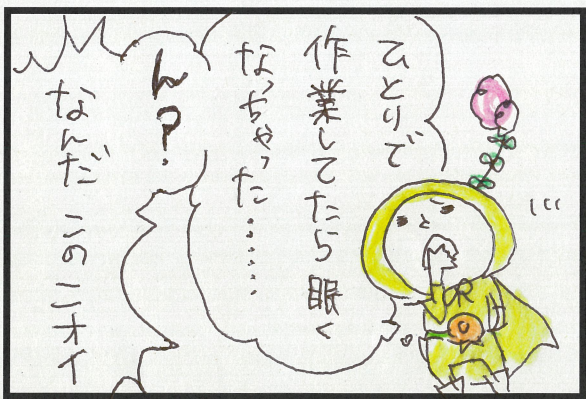 ひとりで
作業してたら眠く
なっちゃった……
ん？
なんだ このニオイ
R